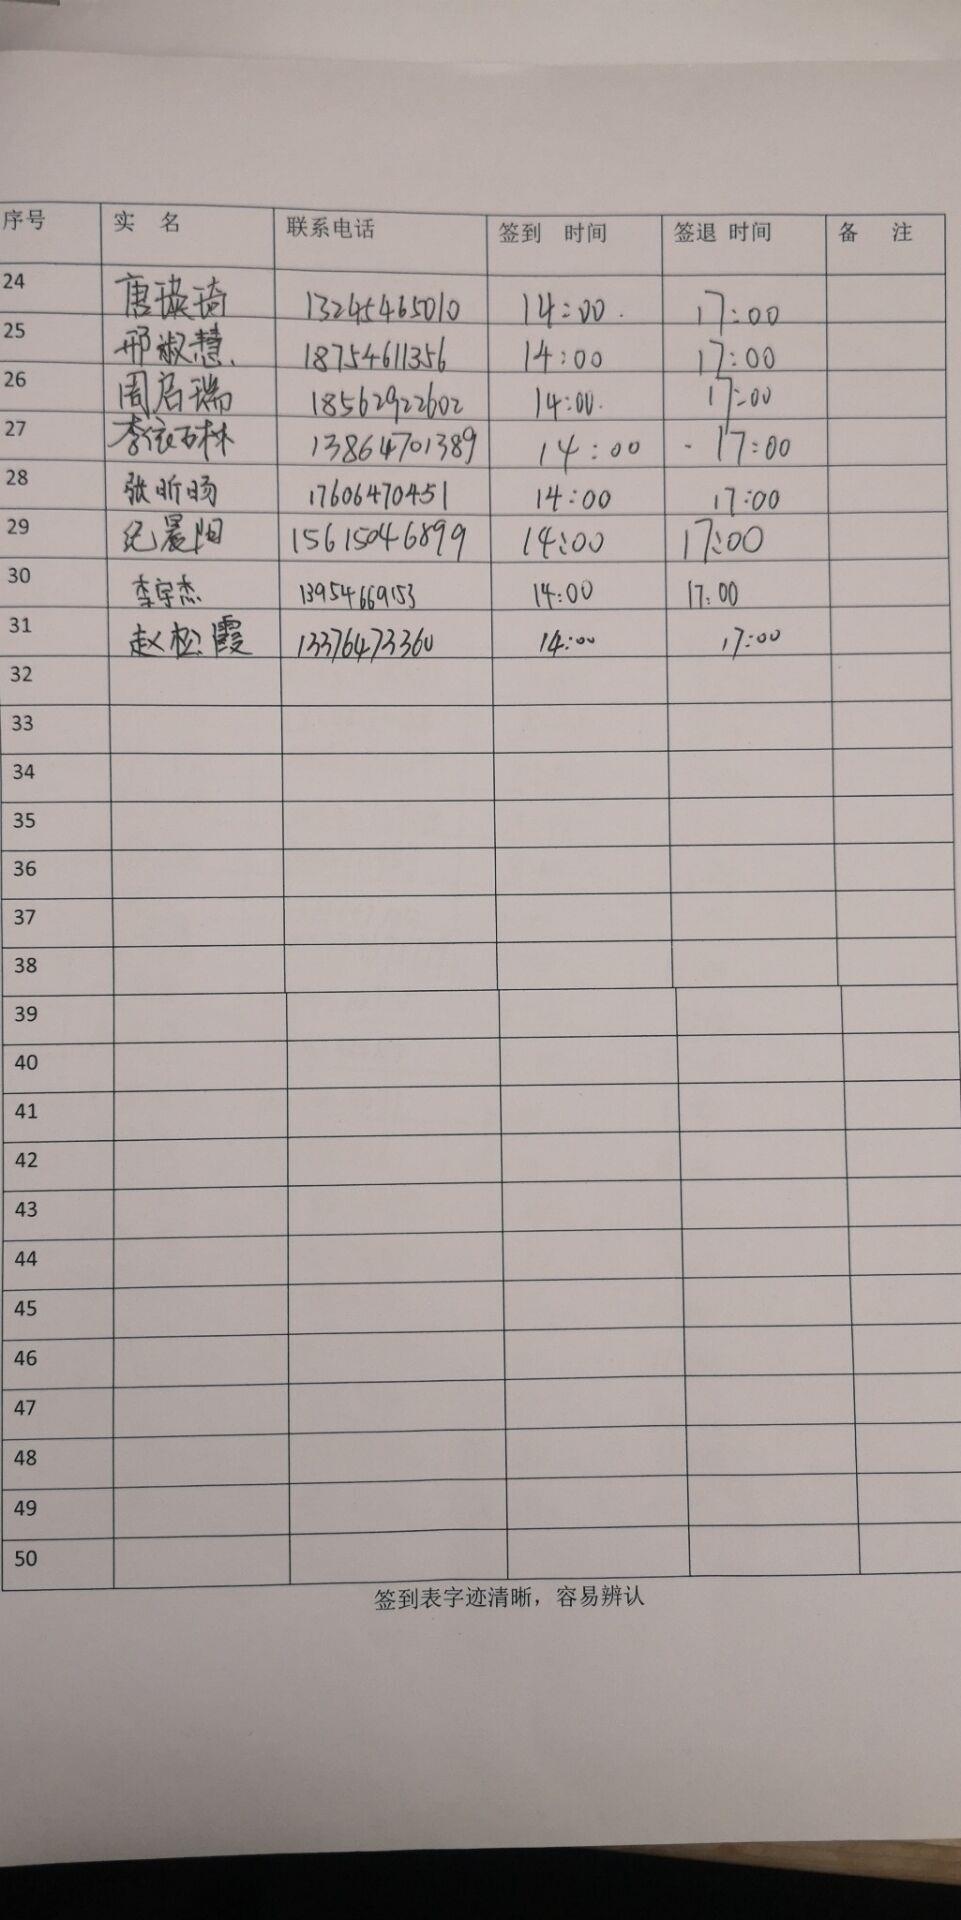 序号 实 名 联系电话 签到 时间 签退 时间 备 注
24 唐瑛琦 13245465010 14:00 17:00
25 邢淑慧 18754611356 14:00 17:00
26 周启瑞 18562922602 14:00 17:00
27 13864701389 14:00 17:00
28 张昕旸 17606470451 14:00 17:00
29 纪晨阳 15615046899 14:00 17:00
30 李宇杰 13954669153 14:00 17:00
31 赵松霞 13376473360 14:00 17:00
32
33
34
35
36
37
38
39
40
41
42
43
44
45
46
47
48
49
50
签到表字迹清晰，容易辨认